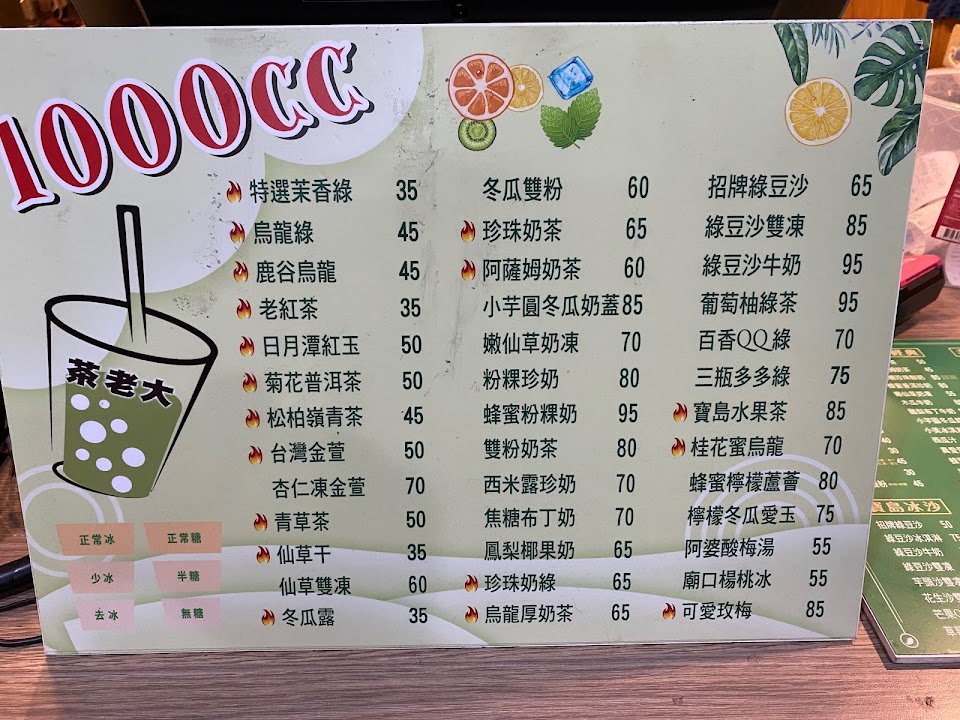 1000CC
特選茉香綠 35
烏龍綠 45
鹿谷烏龍 45
老紅茶 35
日月潭紅玉 50
菊花普洱茶 50
松柏嶺青茶 45
台灣金萱 50
杏仁凍金萱 70
青草茶 50
仙草干 35
仙草雙凍 60
冬瓜露 35
冬瓜雙粉 60
珍珠奶茶 65
阿薩姆奶茶 60
小芋圓冬瓜奶蓋 85
嫩仙草奶凍 70
粉粿珍奶 80
蜂蜜粉粿奶 95
雙粉奶茶 80
西米露珍奶 70
焦糖布丁奶 70
鳳梨椰果奶 65
珍珠奶綠 65
烏龍厚奶茶 65
招牌綠豆沙 65
綠豆沙雙凍 85
綠豆沙牛奶 95
葡萄柚綠茶 95
百香QQ綠 70
三瓶多多綠 75
寶島水果茶 85
桂花蜜烏龍 70
蜂蜜檸檬蘆薈 80
檸檬冬瓜愛玉 75
阿婆酸梅湯 55
廟口楊桃冰 55
可愛玫梅 85
茶老大
正常冰 正常糖
少冰 半糖
去冰 無糖
寶島冰沙
招牌綠豆沙 50
綠豆沙冰淇淋 75
綠豆沙牛奶
綠豆沙雙凍
芋頭沙雙
花生沙雙
芒果